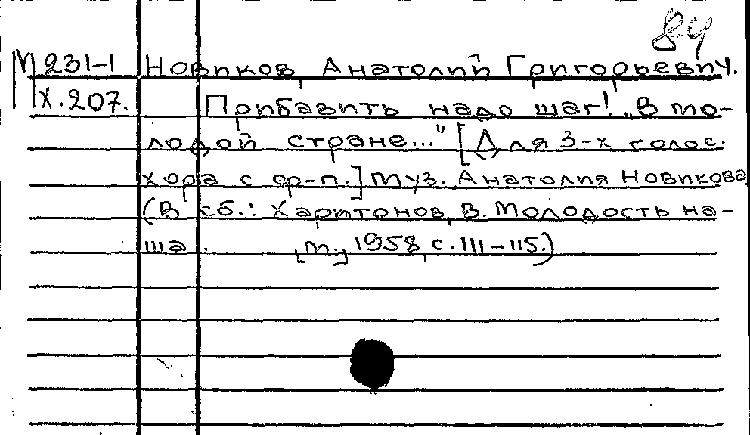 84
М 231-1 Новиков, Анатолий Григорьевич.
Х.207. Прибавить надо шаг! „В мо-
лодой стране..." [Для 3-х голос.
хора с ф-п.] Муз. Анатолия Новикова
(В сб.: Харитонов, В. Молодость на-
ша , М., 1958, с. 111-115.)